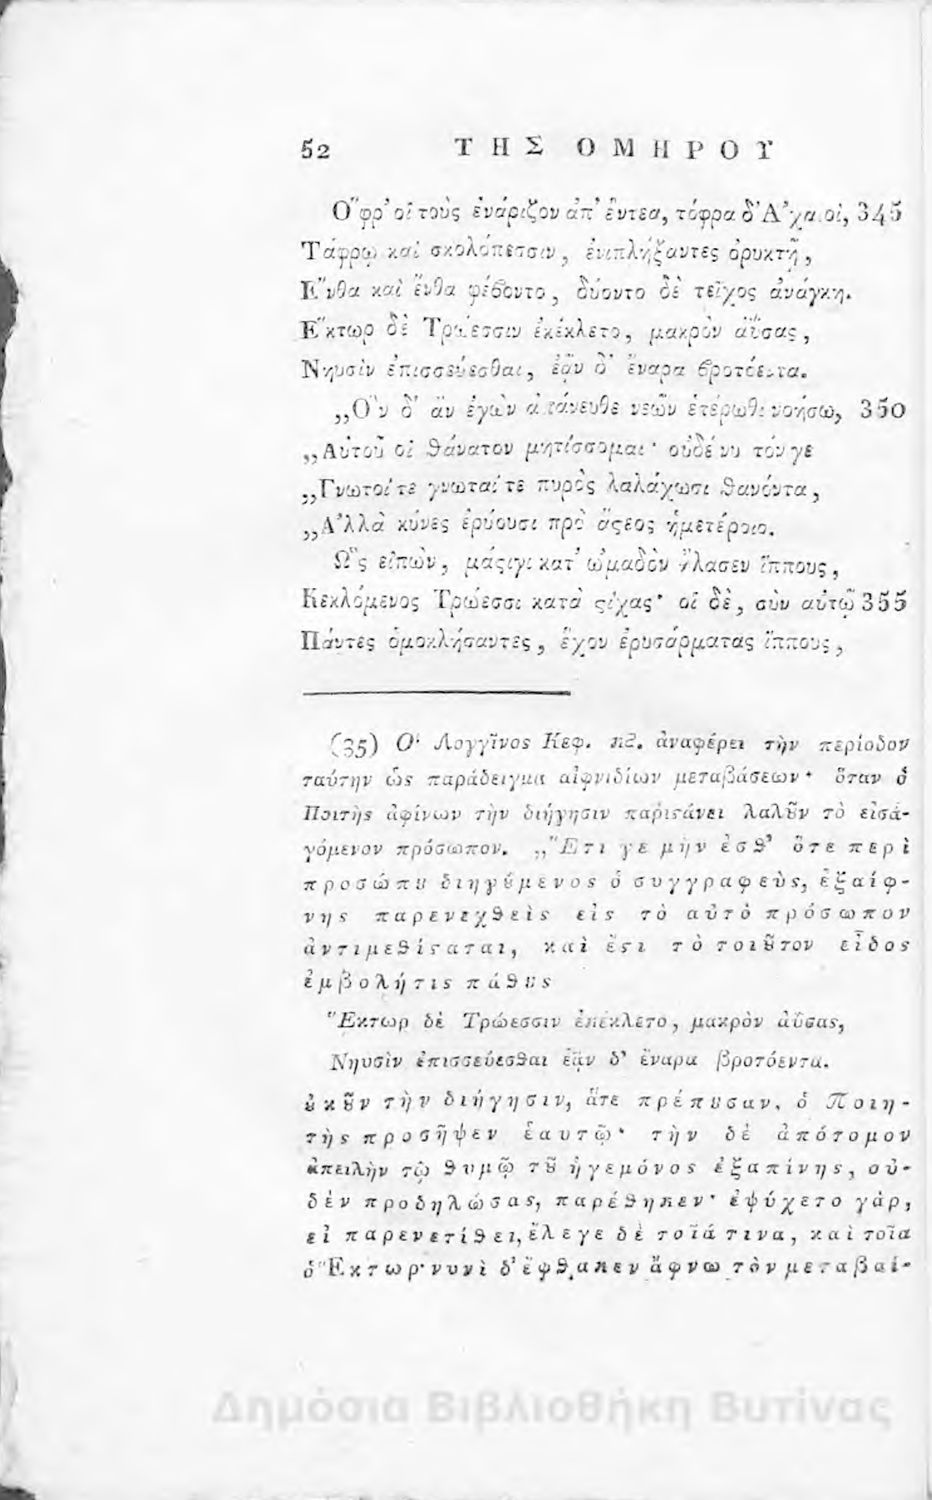 52 ΤΗΣ ΟΜΗΡΟΥ
Ο῎φρ’ οἳ τοὺς ἐνάριζον ἀπ’ ἔντεα, τόφρα δ’ Α᾿χαιοί, 345
Τάφρῳ καὶ σκολόπεσσιν, ἐνιπλήξαντες ὀρυκτῇ,
Ε῎νθα καὶ ἔνθα φέβοντο, δύοντο δὲ τεῖχος ἀνάγκῃ.
Ε῞κτωρ δὲ Τρώεσσιν ἐκέκλετο, μακρὸν ἀΰσας,
Νηυσὶν ἐπισσεύεσθαι, ἐᾷν δ’ ἔναρα βροτόεντα.
„Ο῝ν δ’ ἂν ἐγὼν ἀπάνευθε νεῶν ἑτέρωθι νοήσω, 350
„Αὐτοῦ οἱ θάνατον μητίσσομαι· οὐδέ νυ τόνγε
„Γνωτοί τε γνωταί τε πυρὸς λαλάχωσι θανόντα,
„Α᾿λλὰ κύνες ἐρύουσι πρὸ ἄςεος ἡμετέροιο.
Ω῝ς εἰπών, μάςιγι κατ’ ὠμαδὸν ἤλασεν ἵππους,
Κεκλόμενος Τρώεσσι κατὰ ςίχας· οἱ δὲ, σὺν αὐτῷ 355
Πάντες ὁμοκλήσαντες, ἔχον ἐρυσάρματας ἵππους,
(35) Ο῾ Λογγῖνος Κεφ. κζ. ἀναφέρει τὴν περίοδον
ταύτην ὡς παράδειγμα αἰφνιδίων μεταβάσεων· ὅταν ὁ
Ποιτὴς ἀφίνων τὴν διήγησιν παριςάνει λαλȣ̃ν τὸ εἰσα-
γόμενον πρόσωπον. „῎Ετι γε μὴν ἐσθ’ ὅτε περὶ
προσώπȣ διηγȣ́μενος ὁ συγγραφεὺς, ἐξαίφ-
νης παρενεχθεὶς εἰς τὸ αὐτὸ πρόσωπον
ἀντιμεθίςαται, καὶ ἔςι τὸ τοιȣ̃τον εἶδος
ἐμβολή τις πάθȣς
῞Εκτωρ δὲ Τρώεσσιν ἐπέκλετο, μακρὸν ἀΰσας,
Νηυσὶν ἐπισσεύεσθαι ἐᾷν δ’ ἔναρα βροτόεντα.
ȣ̓κȣ̃ν τὴν διήγησιν, ἅτε πρέπȣσαν, ὁ Ποιη-
τὴς προσῆψεν ἑαυτῷ· τὴν δὲ ἀπότομον
ἀπειλὴν τῷ θυμῷ τȣ̃ ἡγεμόνος ἐξαπίνης, οὐ-
δὲν προδηλώσας, παρέθηκεν· ἐψύχετο γὰρ,
εἰ παρενετίθει, ἔλεγε δὲ τοῖά τινα, καὶ τοῖα
ὁ ῞Εκτωρ· νυνὶ δ’ ἔφθακεν ἄφνω τὸν μεταβαί-
Δημόσια Βιβλιοθήκη Βυτίνας